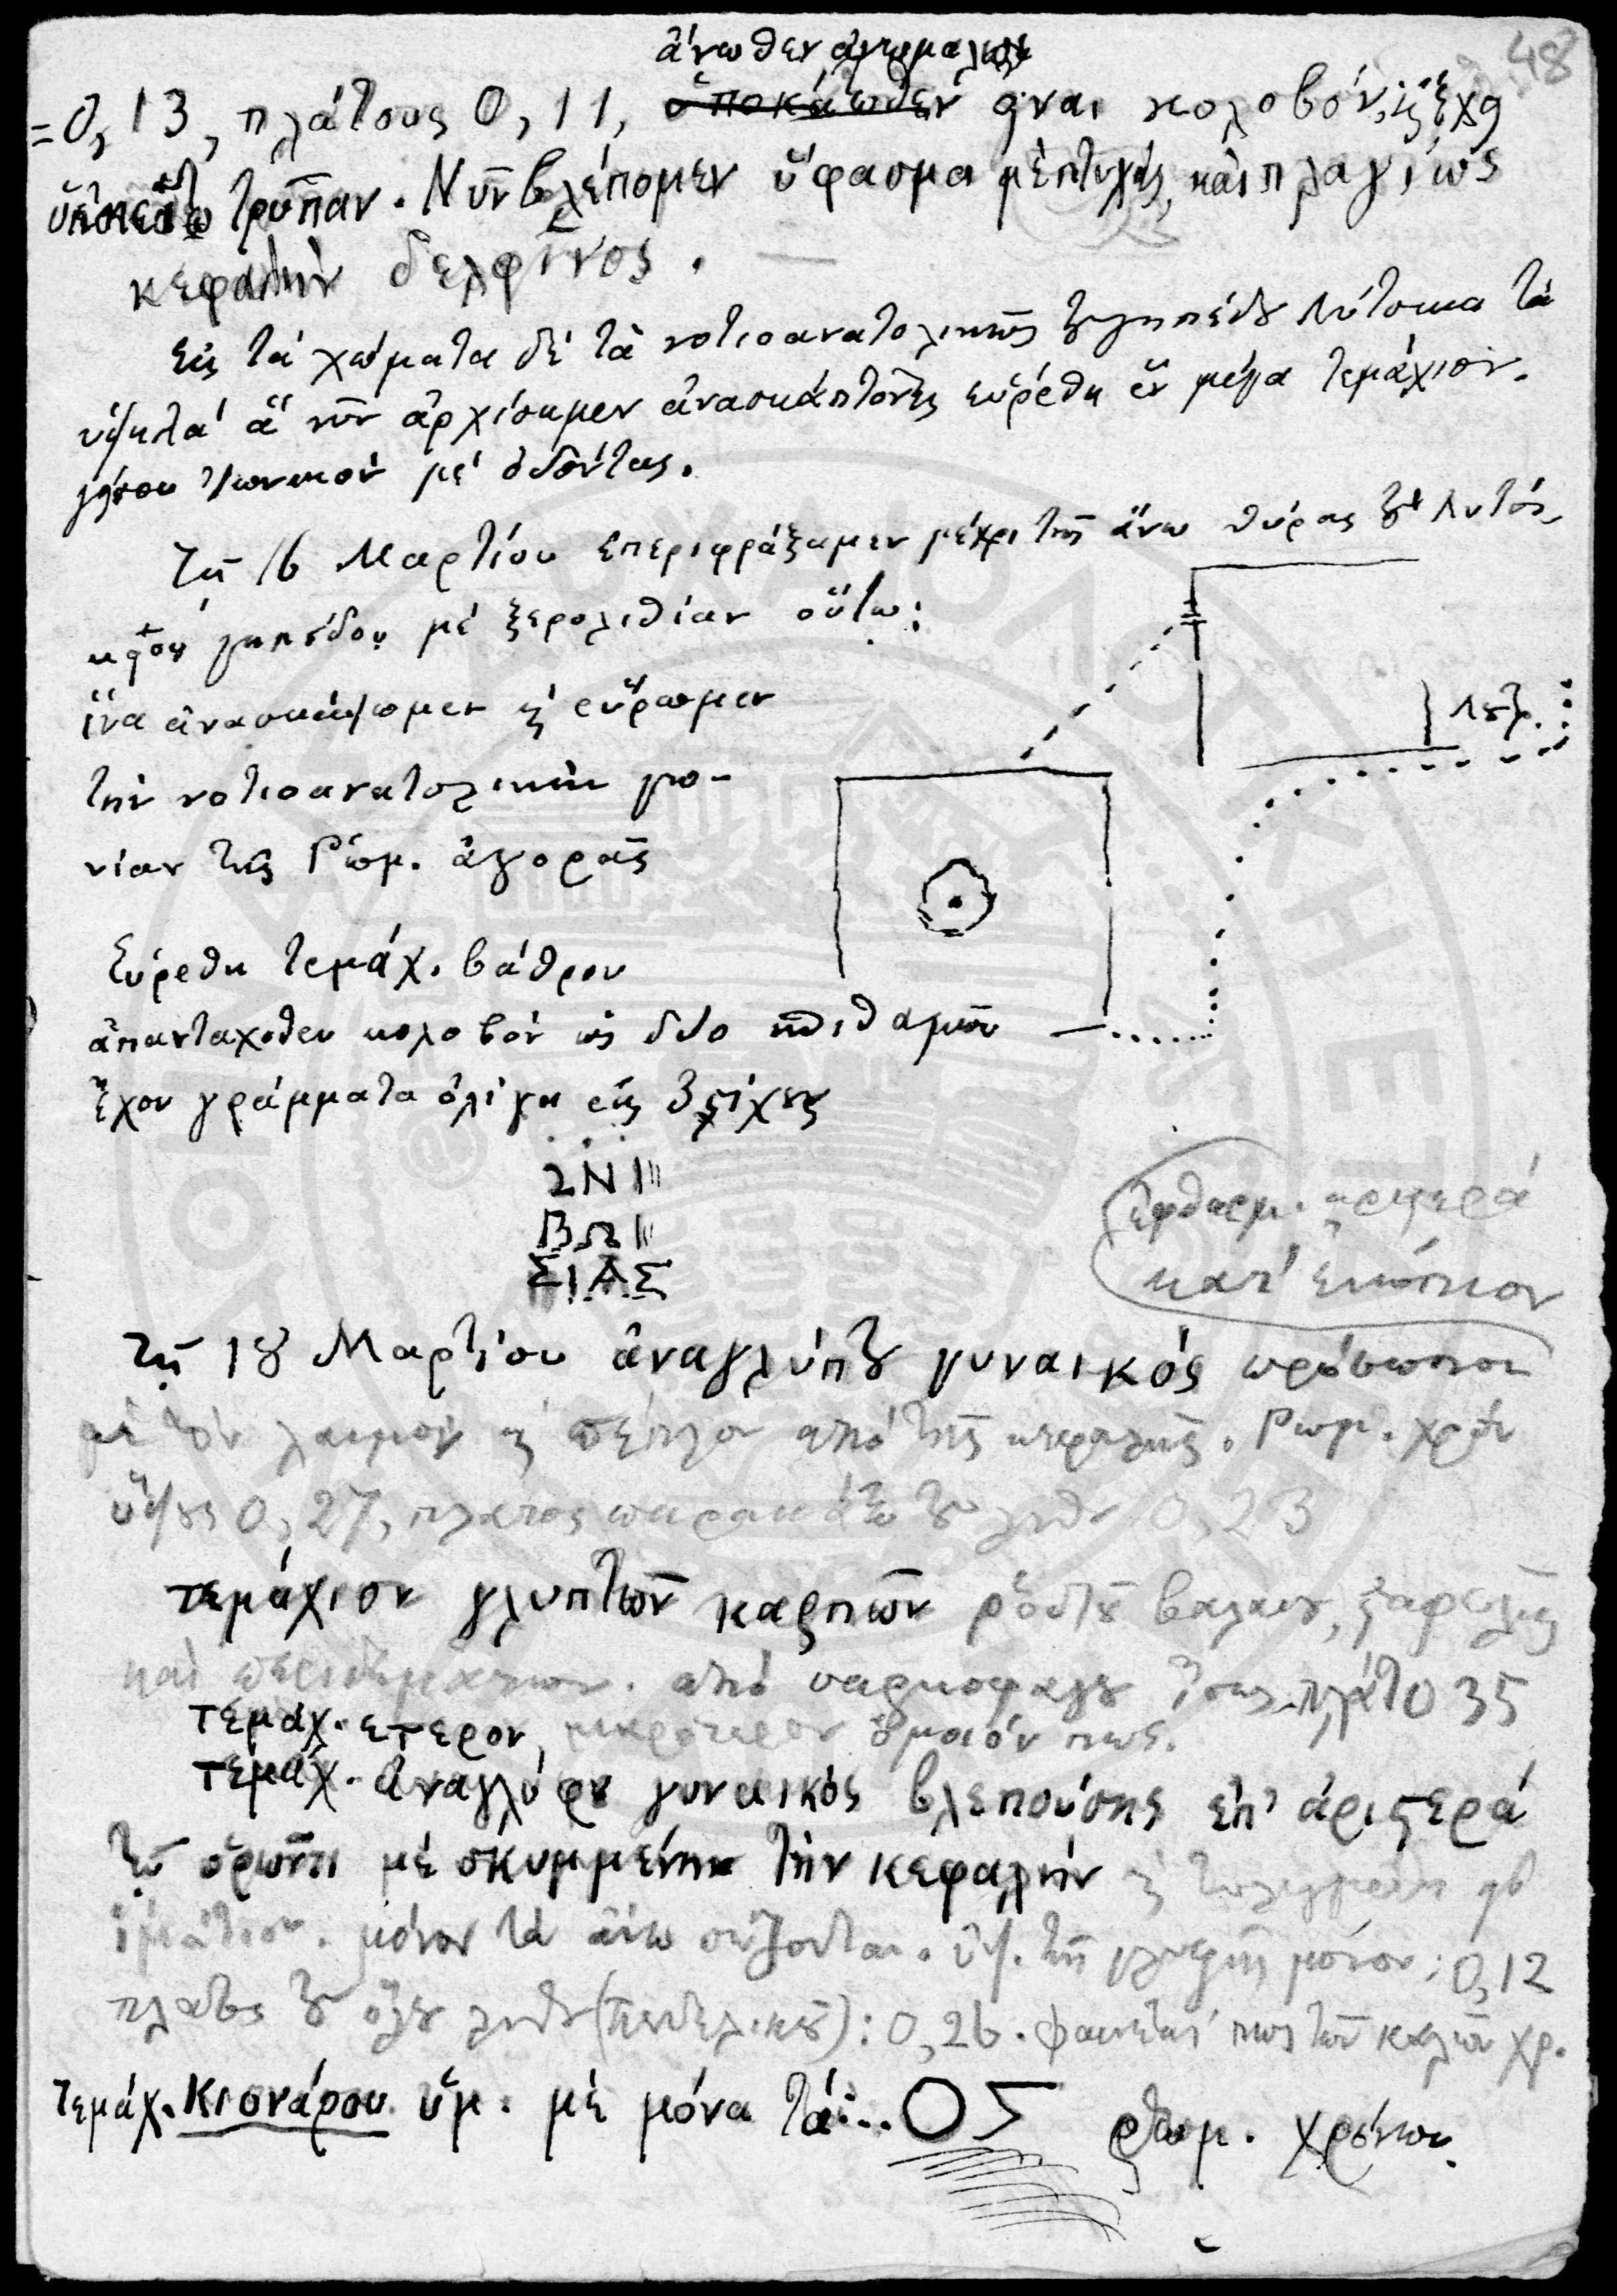 48
ἄνωθεν
=0,13, πλάτους 0,11, ὑποκάτωθεν εἶναι κολοβόν, κ ἔχει
τρῦπαν. Νῦν βλέπομεν ὕφασμα μὲ πτυχάς, καὶ πλαγίως
κεφαλὴν δελφῖνος. —
Εἰς τὰ χώματα δὲ τὰ νοτιοανατολικῶς τοῦ γηπέδου Λύτσικα τὰ
ὑψηλὰ ἃ νῦν ἀρχίσαμεν ἀνασκάπτοντες εὑρέθη ἓν μέγα τεμάχιον
γείσου Ἰωνικὸν μὲ ὀδόντας.
Τῇ 16 Μαρτίου ἐπεριφράξαμεν μέχρι τῆς ἄνω θύρας τοῦ Λυτσι-
κείου γηπέδου μὲ ξερολιθίαν οὕτω:
ἵνα ἀνασκάψωμεν κ εὕρωμεν
τὴν νοτιοανατολικὴν γω-
νίαν τῆς Ῥωμ. ἀγορᾶς
Εὑρέθη τεμάχ. βάθρου
ἁπανταχόθεν κολοβὸν ὡς δύο πιθαμῶν
ἔχον γράμματα ὀλίγα εἰς 3 στίχους
ΣΝΙ
ΒΩΙ
ΣΙΑΣ
ἐφθαρμ. ἀριστερά
κατ' ἐνώπιον
τῇ 18 Μαρτίου ἀναγλύπτου γυναικὸς πρόσωπον
μὲ τὸν λαιμὸν κ πέπλον ἀπὸ τῆς κεφαλῆς. Ῥωμ. χρόν
ὕψους 0,27, πλάτος παρακάτω τοῦ λίθου 0,23
τεμάχιον γλυπτῶν καρπῶν ῥόδου βαλάνου, σταφυλῆς
καὶ ἀπὸ σαρκοφάγου ἴσως. πλάτ 0 35
τεμάχ. ἕτερον, μικρότερον ὅμοιόν πως.
τεμάχ. ἀναγλύφου γυναικὸς βλεπούσης ἐπ' ἀριστερά
τῷ ὁρῶντι μὲ σκυμμένην τὴν κεφαλὴν κ
ἱμάτιον. μόνον τὰ ἄνω σώζονται. ὕψ. τῆς γλυφῆς μόνον: 0,12
πλάτος τοῦ ὅλου λίθου (Πεντελικοῦ): 0,26. φαίνεταί πως τῶν καλῶν χρ.
τεμάχ. κιονάρου ὑμ. μὲ μόνα τά:.. ΟΣ Ῥωμ. χρόνων.
Λυτζ.